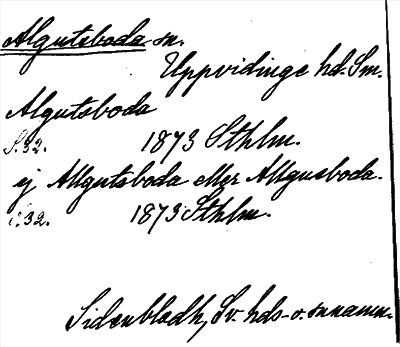 Algutsboda sn.
Uppvidinge hd. Sm.
Algutsboda
S. 32. 1873 Sthlm.
ej Allgutsboda eller Allgusboda.
S. 32. 1873 Sthlm.
Sidenbladh, Sv. hds- o. snnamn.